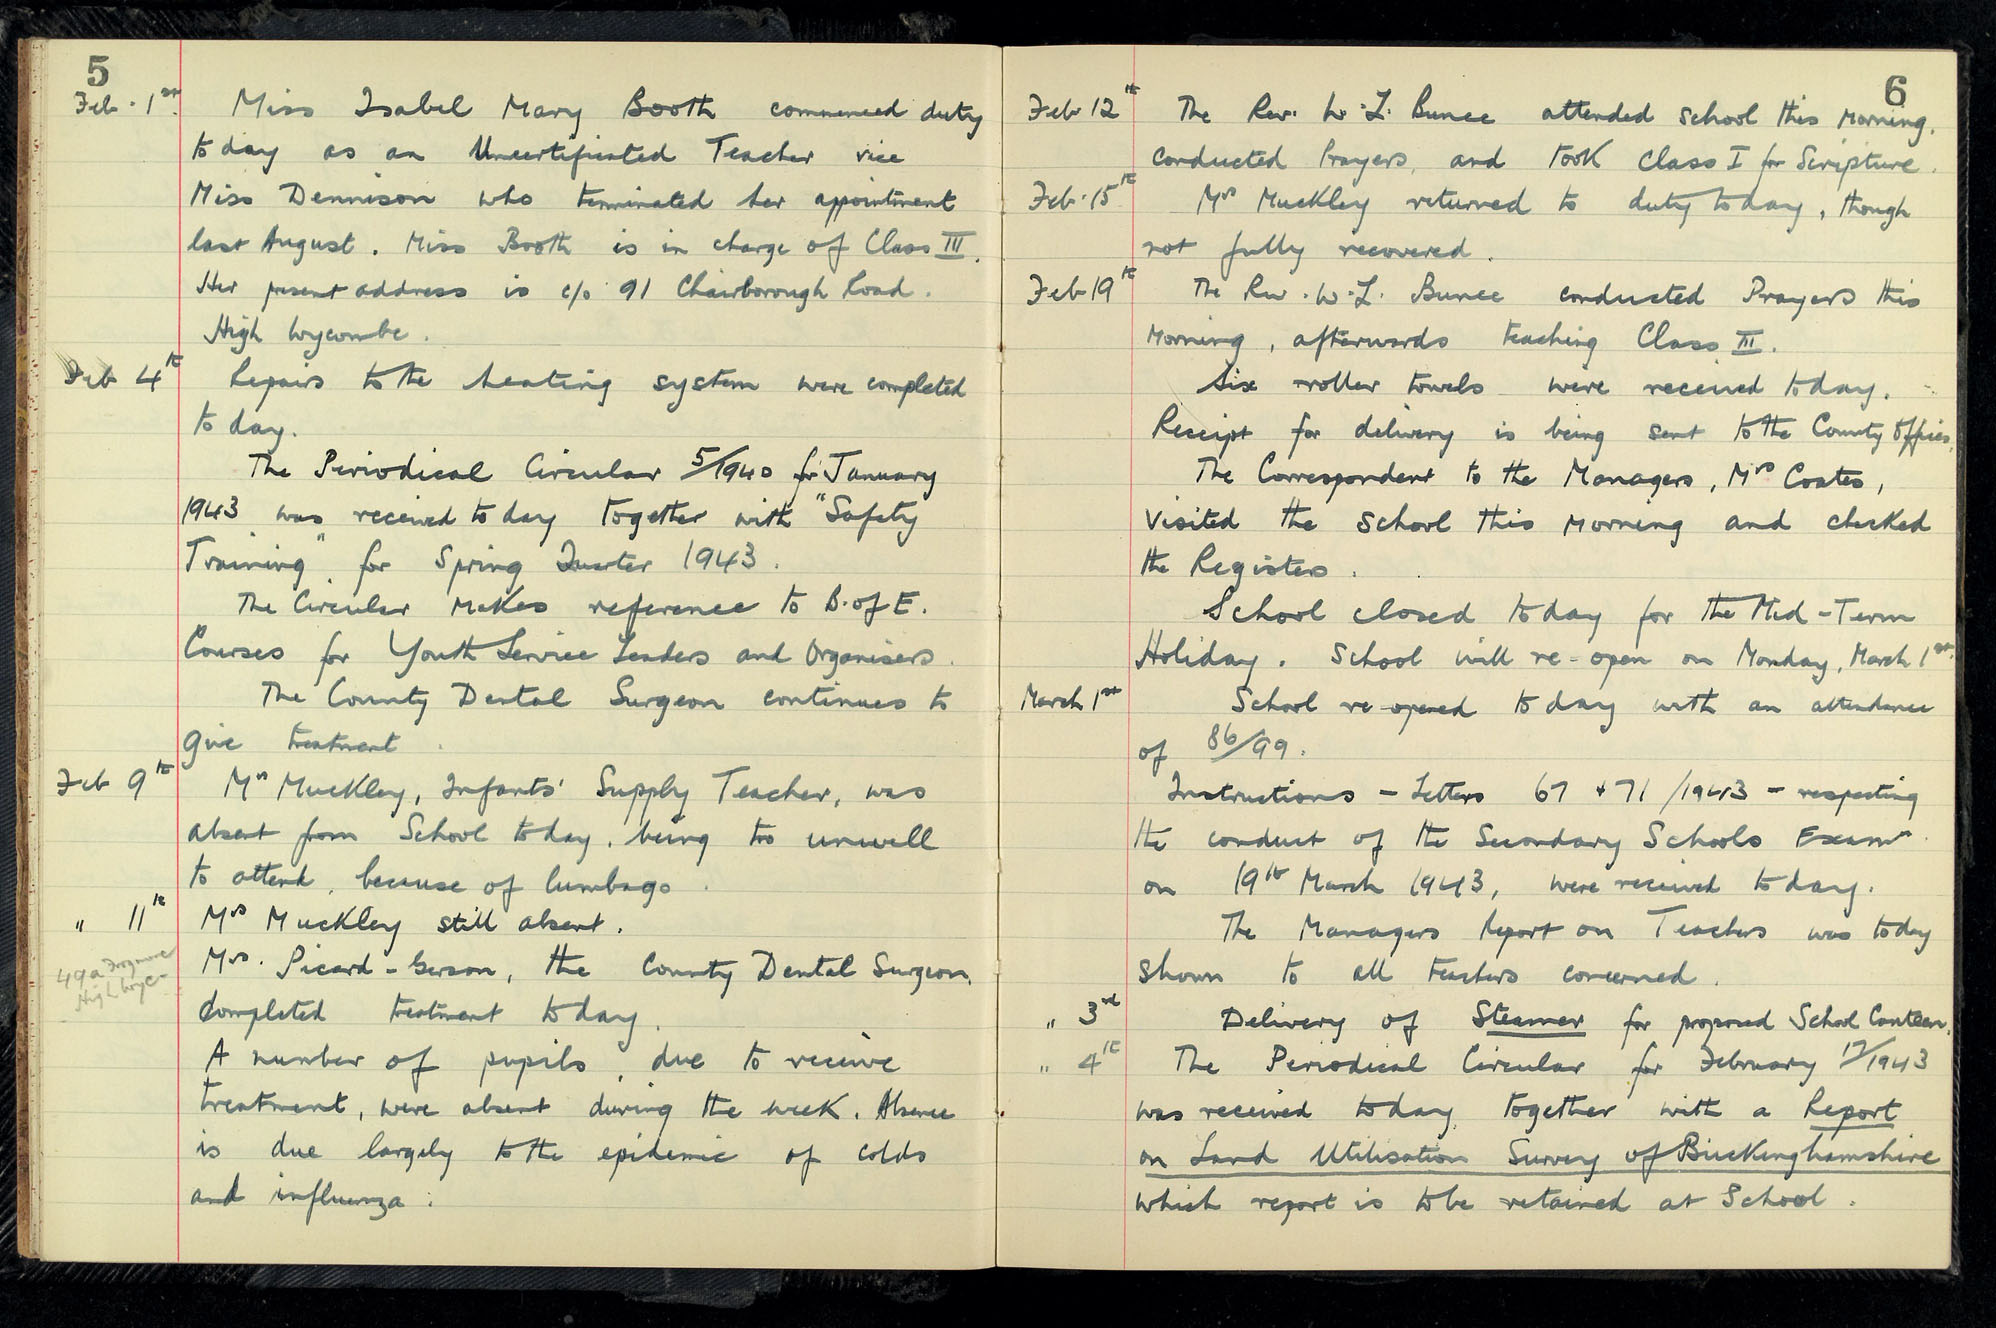 5
Feb. 1st. Miss Isabel Mary Booth commenced duty
today as an Uncertificated Teacher vice
Miss Dennison who terminated her appointment
last August. Miss Booth is in charge of Class III.
Her present address is c/o 91 Chairborough Road.
High Wycombe.
Feb 4th Repairs to the heating system were completed
today.
The Periodical Circular 5/1940 for January
1943 was received today together with "Safety
Training" for Spring Quarter 1943.
The Circular makes reference to B. of E.
Courses for Youth Service Leaders and Organisers.
The County Dental Surgeon continues to
give treatment.
Feb 9th Mrs Muckley, Infants' Supply Teacher, was
absent from School today, being too unwell
to attend, because of lumbago.
" 11th Mrs Muckley still absent.
49a
High Wyc-
Mrs. Picard-Gerson, the County Dental Surgeon,
completed treatment today.
A number of pupils, due to receive
treatment, were absent during the week. Absence
is due largely to the epidemic of colds
and influenza.
6
Feb 12th The Rev. W. L. Bunce attended school this morning,
conducted Prayers, and took Class I for Scripture.
Feb. 15th Mrs Muckley returned to duty today, though
not fully recovered.
Feb 19th The Rev. W. L. Bunce conducted Prayers this
morning, afterwards teaching Class III.
Six roller towels were received today.
Receipt for delivery is being sent to the County Offices.
The Correspondent to the Managers, Mrs Coates,
visited the school this morning and checked
the Registers.
School closed today for the Mid-Term
Holiday. School will re-open on Monday, March 1st.
March 1st School re-opened today with an attendance
of 86/99.
Instructions - Letters 67 & 71/1943 - respecting
the conduct of the Secondary Schools Examn
on 19th March 1943, were received today.
The Managers Report on Teachers was today
shown to all teachers concerned.
" 3rd Delivery of Steamer for proposed School Canteen.
" 4th The Periodical Circular for February 17/1943
was received today, together with a Report
on Land Utilisation Survey of Buckinghamshire
which report is to be retained at School.